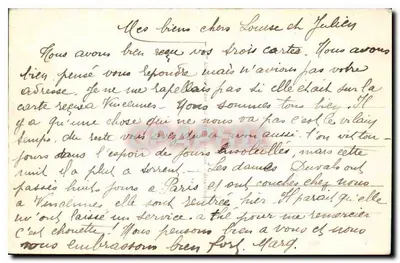 Mes biens chers Louise et Julien
Nous avons bien reçu vos trois cartes. Nous avons
bien pensé vous repondre mais n'avions pas votre
adresse. Je ne me rappellais pas si elle était sur la
carte reçue a Vincennes - Nous sommes tous bien. Il
y a qu'une chose qui ne nous va pas c'est le vilain
temps, du reste vous avez du a aussi. l'on vit tou-
jours dans l'espoir de jours ensoleillés, mais cette
nuit il a plut a torrent - Les dames Duvals ont
passés huit jours a Paris et ont couchés chez nous
a Vincennes elle sont rentrée hier. Il parait qu'elle
m'ont laissé un service a thé pour me remercier
c'est chouette! Nous pensons bien a vous et nous
vous embrassons bien fort. Marg.